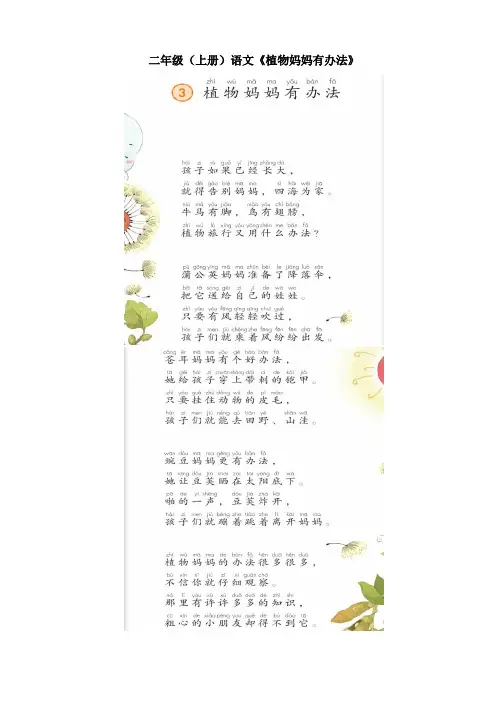 二年级（上册）语文《植物妈妈有办法》
zhí wù mā ma yǒu bàn fǎ
3 植物妈妈有办法
hái zi rú guǒ yǐ jīng zhǎng dà
孩子如果已经长大，
jiù děi gào bié mā ma sì hǎi wéi jiā
就得告别妈妈，四海为家。
niú mǎ yǒu jiǎo niǎo yǒu chì bǎng
牛马有脚，鸟有翅膀，
zhí wù lǚ xíng yòu yòng shén me bàn fǎ
植物旅行又用什么办法？
pú gōng yīng mā ma zhǔn bèi le jiàng luò sǎn
蒲公英妈妈准备了降落伞，
bǎ tā sòng gěi zì jǐ de wá wa
把它送给自己的娃娃。
zhǐ yào yǒu fēng qīng qīng chuī guò
只要有风轻轻吹过，
hái zi men jiù chéng zhe fēng fēn fēn chū fā
孩子们就乘着风纷纷出发。
cāng ěr mā ma yǒu gè hǎo bàn fǎ
苍耳妈妈有个好办法，
tā gěi hái zi chuān shàng dài cì de kǎi jiǎ
她给孩子穿上带刺的铠甲。
zhǐ yào guà zhù dòng wù de pí máo
只要挂住动物的皮毛，
hái zi men jiù néng qù tián yě shān wā
孩子们就能去田野、山洼。
wān dòu mā ma gèng yǒu bàn fǎ
豌豆妈妈更有办法，
tā ràng dòu jiá shài zài tài yáng dǐ xià
她让豆荚晒在太阳底下。
pā de yì shēng dòu jiá zhà kāi
啪的一声，豆荚炸开，
hái zi men jiù bèng zhe tiào zhe lí kāi mā ma
孩子们就蹦着跳着离开妈妈。
zhí wù mā ma de bàn fǎ hěn duō hěn duō
植物妈妈的办法很多很多，
bú xìn nǐ jiù zǐ xì guān chá
不信你就仔细观察。
nà lǐ yǒu xǔ xǔ duō duō de zhī shi
那里有许许多多的知识，
cū xīn de xiǎo péng yǒu què dé bú dào tā
粗心的小朋友却得不到它。